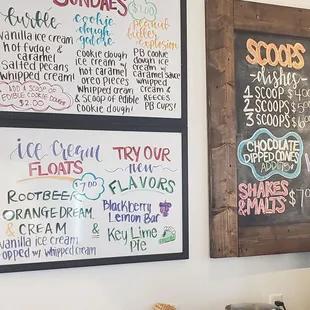 SUNDAES
turtle
vanilla ice cream
hot fudge &
caramel
salted pecans
whipped cream!
ADD A SCOOP OF
EDIBLE COOKIE DOUGH
$2.00
cookie
dough
galore
cookie dough
ice cream w/
hot caramel
oreo pieces
whipped cream
& scoop of edible
cookie dough!
$10
peanut
butter
explosion
PB cookie
dough ice
cream w/
caramel sauce
whipped
cream &
REECES
PB CUPS!
ice cream
FLOATS
$7.00
ROOTBEER
ORANGE DREAM
& CREAM &
vanilla ice cream
topped w/ whipped cream
TRY OUR
new
FLAVORS
Blackberry
Lemon Bar
&
Key Lime
Pie
SCOOPS
dishes
1 SCOOP
2 SCOOPS
3 SCOOPS
CHOCOLATE
DIPPED CONES
ADD
SHAKES &
MALTS $7